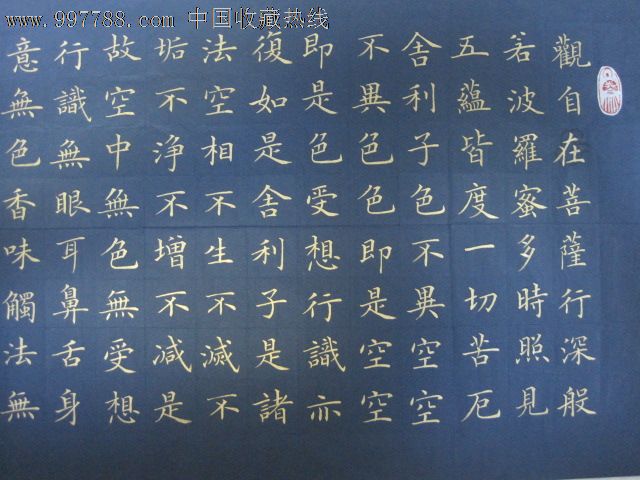 www.997788.com 中国收藏热线
觀自在菩薩行深般
若波羅蜜多時照見
五蘊皆度一切苦厄
舍利子色不異空空
不異色色即是空空
即是色受想行識亦
復如是舍利子是諸
法空相不生不滅不
垢不淨不增不減是
故空中無色無受想
行識無眼耳鼻舌身
意無色香味觸法無